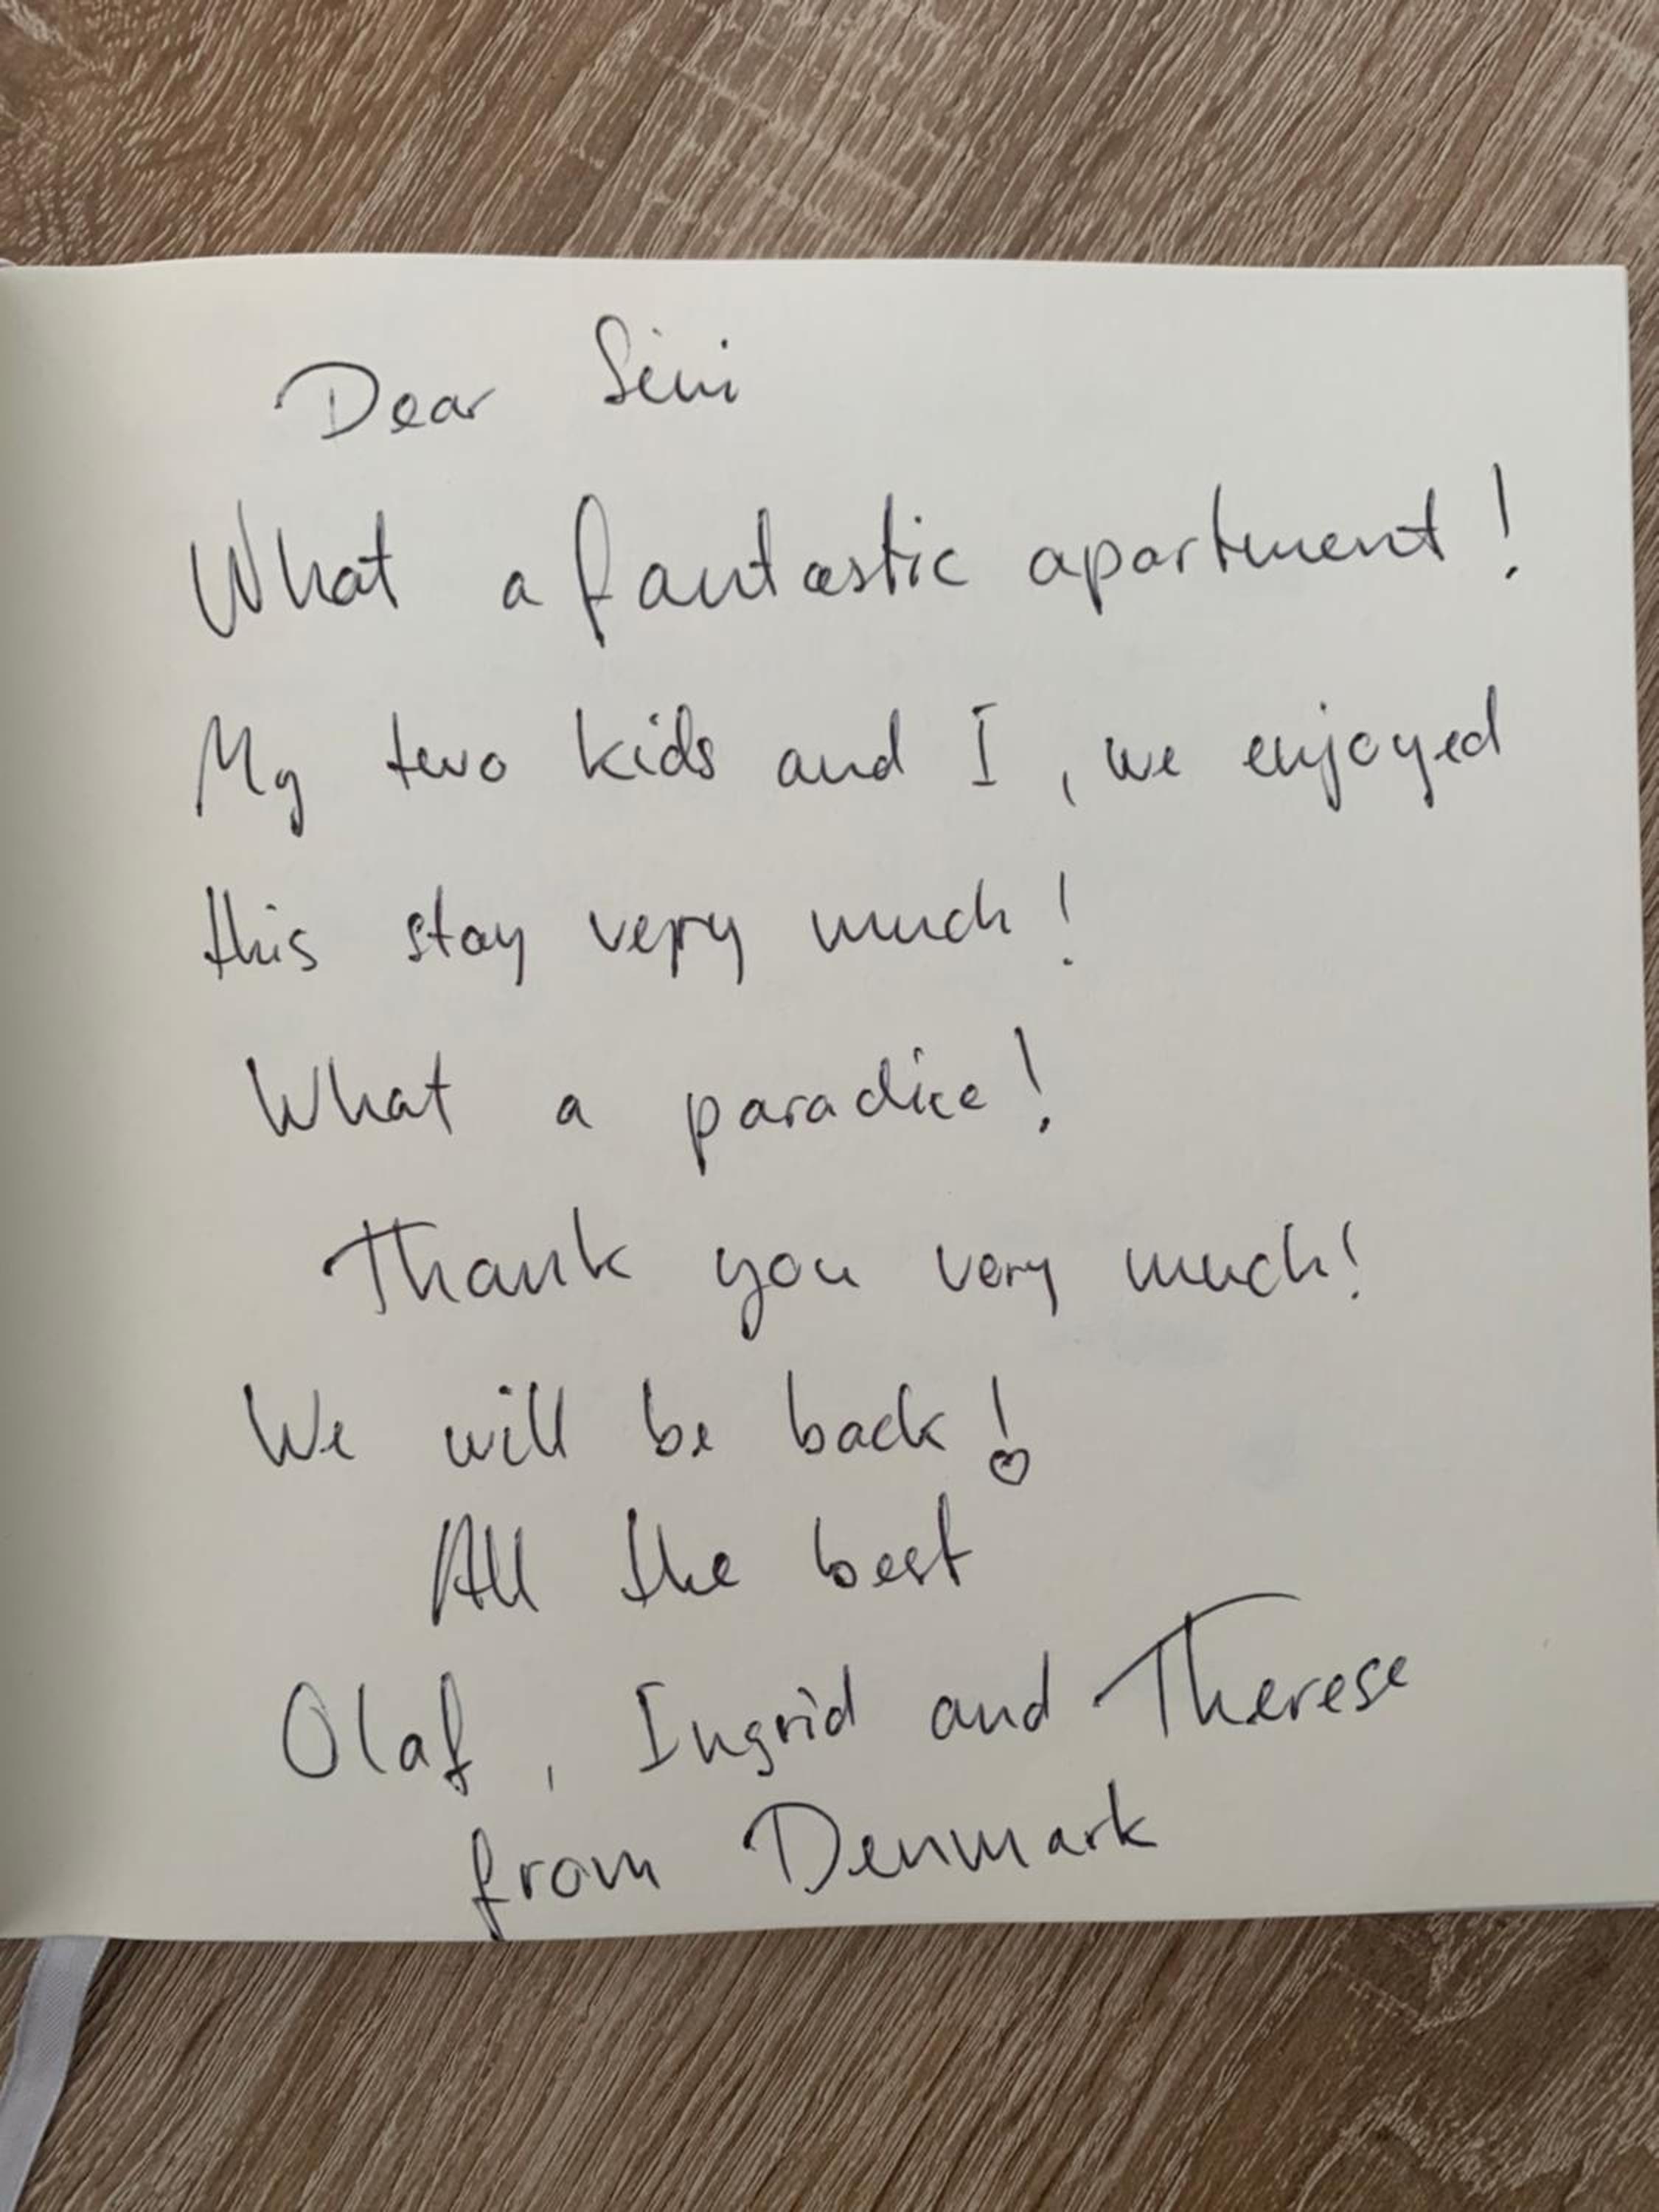 Dear Sini
What a fantastic apartment!
My two kids and I, we enjoyed
this stay very much!
What a paradice!
Thank you very much!
We will be back!
All the best
Olaf, Ingrid and Therese
from Denmark